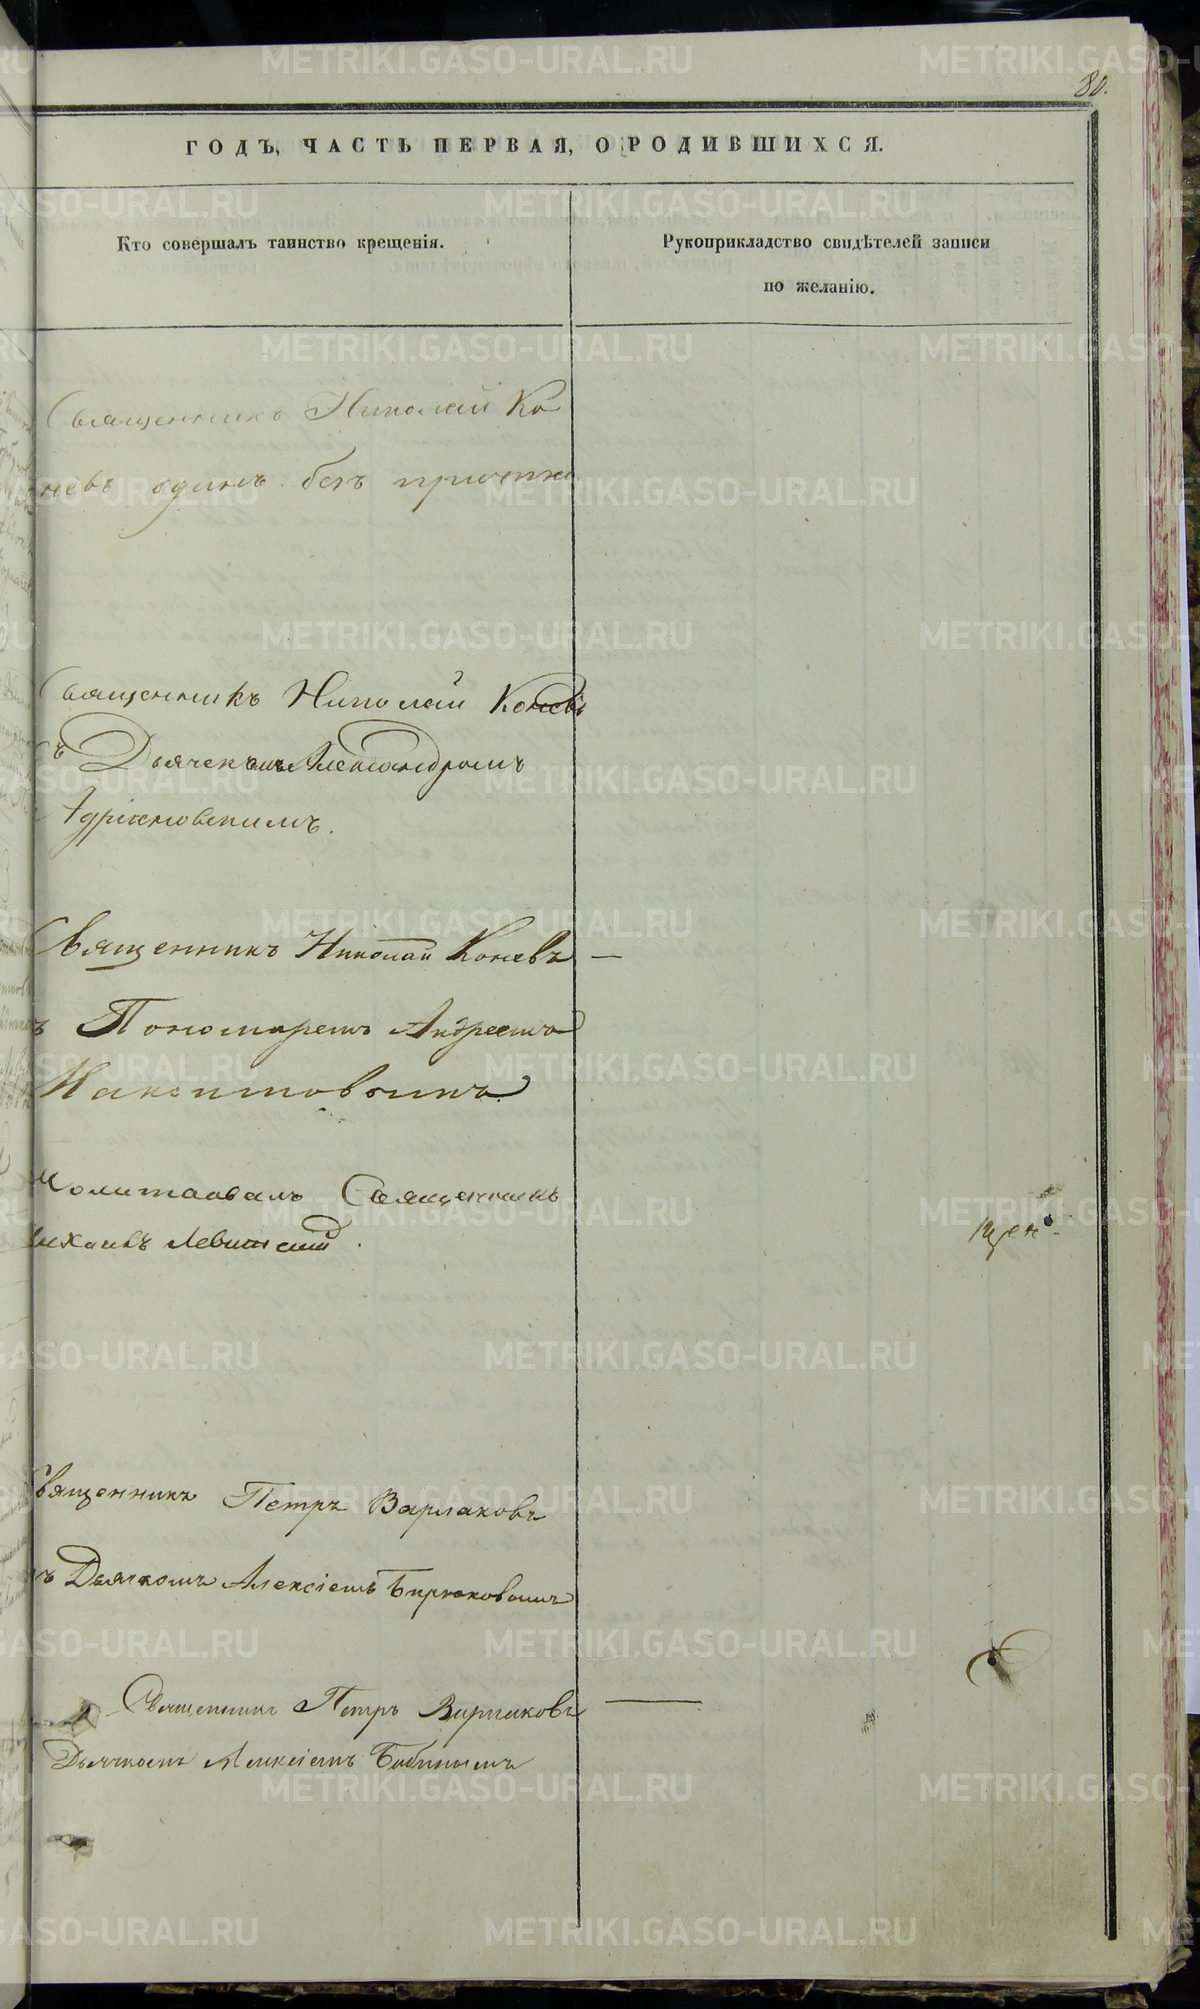 80.
ГОДЪ, ЧАСТЬ ПЕРВАЯ, О РОДИВШИХСЯ.
Кто совершалъ таинство крещенія.
Рукоприкладство свидѣтелей записи
по желанію.
Священникъ Николай Ко
невъ одинъ безъ причта
Священникъ Николай Коневъ
съ Дьячекомъ Александромъ
Адріановскимъ.
Священникъ Николай Коневъ —
ъ Пономаремъ Андреемъ
Максимовымъ
Молитвовалъ Священникъ
Левитский.
Священникъ Петръ Варлаковъ
ъ Дьячкомъ Алексіемъ Бирюковымъ
Священникъ Петръ Варлаковъ —
Дьячкомъ Алексіемъ Бабинымъ
METRIKI.GASO-URAL.RU